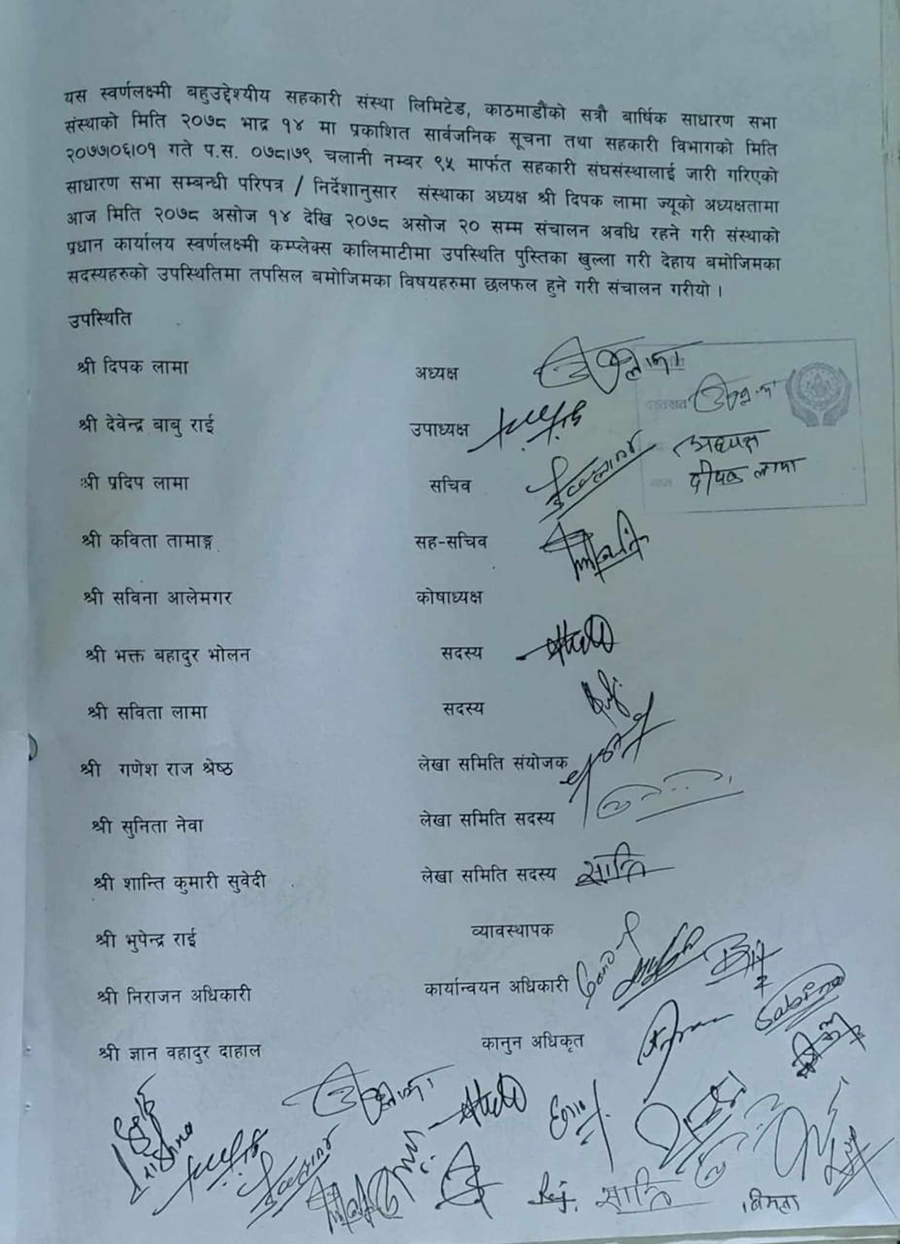 यस स्वर्णलक्ष्मी बहुउद्देश्यीय सहकारी संस्था लिमिटेड, काठमाडौंको सत्रौ बार्षिक साधारण सभा
संस्थाको मिति २०७८ भाद्र १४ मा प्रकाशित सार्वजनिक सूचना तथा सहकारी विभागको मिति
२०७७।०६।०१ गते प.स. ०७८।७९ चलानी नम्बर ९५ मार्फत सहकारी संघसंस्थालाई जारी गरिएको
साधारण सभा सम्बन्धी परिपत्र / निर्देशानुसार संस्थाका अध्यक्ष श्री दिपक लामा ज्यूको अध्यक्षतामा
आज मिति २०७८ असोज १४ देखि २०७८ असोज २० सम्म संचालन अवधि रहने गरी संस्थाको
प्रधान कार्यालय स्वर्णलक्ष्मी कम्प्लेक्स कालिमाटीमा उपस्थिति पुस्तिका खुल्ला गरी देहाय बमोजिमका
सदस्यहरुको उपस्थितिमा तपसिल बमोजिमका विषयहरुमा छलफल हुने गरी संचालन गरीयो ।
उपस्थिति
श्री दिपक लामा अध्यक्ष
दस्तखत
श्री देवेन्द्र बाबु राई उपाध्यक्ष
अध्यक्ष
श्री प्रदिप लामा सचिव
दीपक लामा
श्री कविता तामाङ्ग सह-सचिव
श्री सविना आलेमगर कोषाध्यक्ष
श्री भक्त बहादुर भोलन सदस्य
श्री सविता लामा सदस्य
श्री गणेश राज श्रेष्ठ लेखा समिति संयोजक
श्री सुनिता नेवा लेखा समिति सदस्य
श्री शान्ति कुमारी सुवेदी लेखा समिति सदस्य शान्ति
श्री भुपेन्द्र राई व्यावस्थापक
श्री निराजन अधिकारी कार्यान्वयन अधिकारी
Sabina
श्री ज्ञान वहादुर दाहाल कानुन अधिकृत
शान्ति
विमला